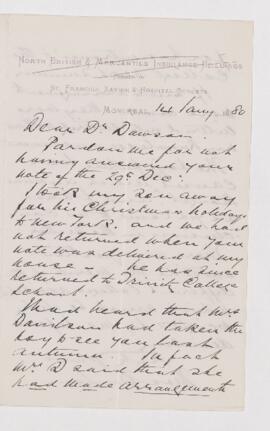 NORTH BRITISH & MERCANTILE INSURANCE BUILDINGS
ST. FRANCOIS XAVIER & HOSPITAL STREETS
MONTREAL, 14 Jany 1880
Dear Dr Dawson.
Pardon me for not
having answered your
note of the 29th Dec.
I took my son away
for his Christmas holidays
to New York. and we had
not returned when your
note was delivered at my
house - he has since
returned to Trinity College
School.
I had heard that Mrs
Davidson had taken the
boy to see you last
autumn. In fact
Mrs D said that she
had made arrangements